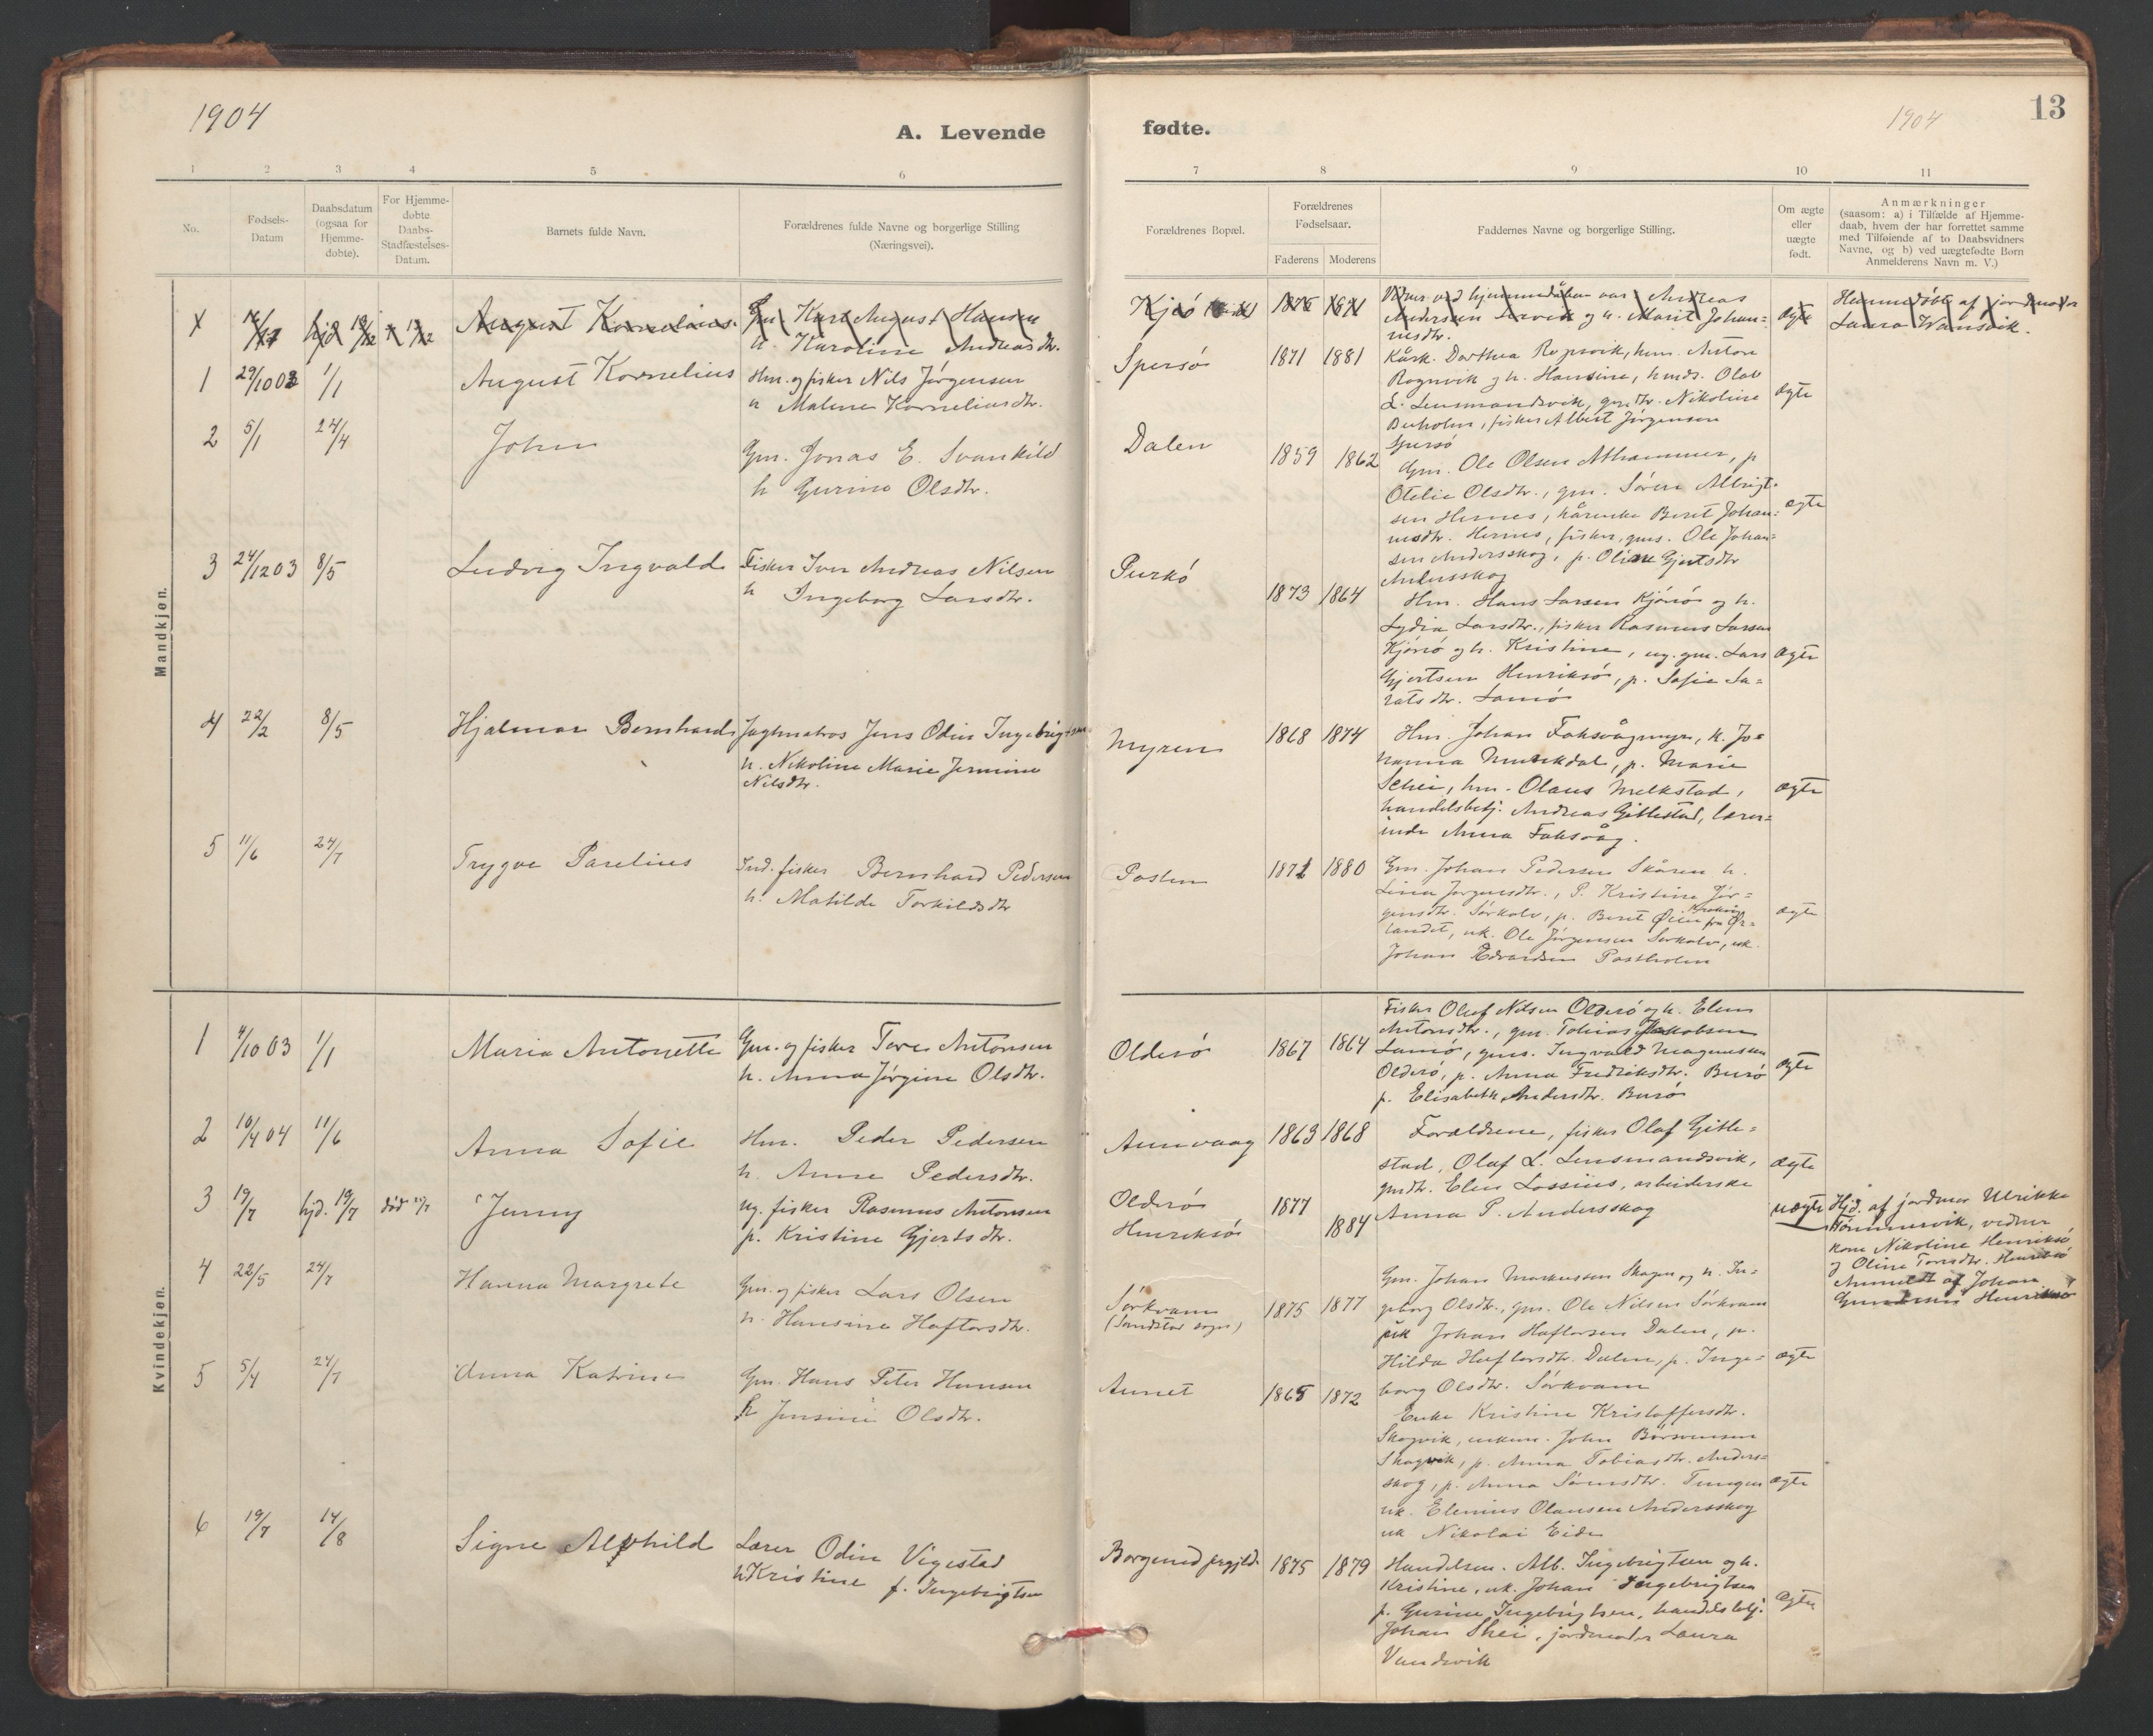 1904
A. Levende fødte.
1904
13
1 2 3 4 5 6 7 8 9 10 11
No.
Fødsels-
Datum
Daabsdatum
(ogsaa for
Hjemme-
døbte).
For Hjemme-
døbte
Daabs-
Stadfæstelses-
Datum.
Barnets fulde Navn.
Forældrenes fulde Navne og borgerlige Stilling
(Næringsvei).
Forældrenes Bopæl.
Forældrenes
Fødselsaar.
Faderens Moderens
Faddernes Navne og borgerlige Stilling.
Om ægte
eller
uægte
født.
Anmærkninger
(saasom: a) i Tilfælde af Hjemme-
daab, hvem der har forrettet samme
med Tilføiende af to Daabsvidners
Navne, og b) ved uægtefødte Børn
Anmelderens Navn m. V.)
Mandkjøn.
August Kornelius.
Gm. Karl August Hansen
h. Karoline Andreasdtr.
Kjesø
1875 1871
Vidner ved hjemmedåben var Andreas
Andersen og h. Marit Johan=
nesdtr.
ægte
Hjemmedøbt af jordmoder
Laura Vandsvik.
1 29/10 03 1/1
August Kornelius
Hm. og fisker Nils Jørgensen
h Malene Korneliusdtr.
Spersø
1871 1881
Kårk. Dorthea Rognvik, hm. Anton
Rognvik og h. Hansine, hmds. Olav
L. Lensmandsvik, gmdtr. Nikoline
Burholm, fisker Albert Jørgensen
Spersø
ægte
2 5/1 24/4
John
Gm. Jonas E. Svankild
h Gurine Olsdtr.
Dalen
1859 1862
Gm. Ole Olsen Athammer, p
Otelie Olsdtr., gm. Søren Albrigt-
sen Hernes, kårenke Beret Johan=
nesdtr. Hernes, fisker, gms. Ole Johan=
sen Andersskog, p. Oline Gjertsdtr
Andersskog
ægte
3 24/12 03 8/5
Ludvig Ingvald
Fisker Iver Andreas Nilsen
h Ingeborg Larsdtr.
Purkø
1873 1864
Hm. Hans Larsen Kjørsø og h.
Lydia Larsdtr., fisker Rasmus Larsen
Kjørsø og h. Kristine, ug. gm. Lars
Gjertsen Henriksø, p. Sofie La=
ratsdtr. Lamø
ægte
4 22/2 8/5
Hjalmar Bernhard
Jagtmatros Jens Odin Ingebrigtsen
h. Nikoline Marie Jermine
Nilsdtr.
Myren
1868 1874
Hm. Johan Faksvågmyr, k. Jo=
hanna Munkdal, p. Marie
Schei, hm. Olaus Melkstad,
handelsbetj. Andreas Gittestad, lærer=
inde Anna Faksvåg.
ægte
5 11/6 24/7
Trygve Parelius
Ind. fisker Bernhard Pedersen
h. Matilde Torkildsdtr
Posten
1871 1880
Gm. Johan Pedersen Skåren h.
Lina Jørgensdtr., P. Kristine Jør=
gensdtr. Sørkalv, p. Beret Øien fra Ør=
landet, uk. Ole Jørgensen Sørkalv, uk.
Johan Edvardsen Postholm
ægte
Kvindekjøn.
1 4/10 03 1/1
Maria Antonette
Gm. og fisker Tore Antonsen
h. Anna Jørgine Olsdtr.
Olderø
1867 1864
Fisker Oluf Nilsen Olderø og h. Elen
Antonsdtr., gm. Tobias Jakobsen
Lamø, gms. Ingvald Magnussen
Olderø, p. Anna Fredriksdtr. Burø
p. Elisabeth Andersdtr. Burø
ægte
2 10/4 04 11/6
Anna Sofie
Hm. Peder Pedersen
h. Anne Pedersdtr.
Aunvaag
1863 1868
Forældrene, fisker Olaf Gitte=
stad, Oluf L. Lensmandsvik,
gmdtr. Elen Lossius, arbeiderske
Anna P. Andersskog
ægte
3 19/7 hjd. 19/7 død 11/7
Jenny
ug. fisker Rasmus Antonsen
p. Kristine Gjertsdtr.
Olderø
Henriksø
1877
1884
uægte
Hjd. af jordmor Ulrikke
Tømmervik, vidner
kone Nikoline Henriksø
og Oline Toresdtr. Henriksø
Anmeldt af Johan
Henriksø
4 22/5 24/7
Hanna Margrete
Gm. og fisker Lars Olsen
h. Hansine Haftorsdtr.
Sørkvam
(Sandstad sogn)
1875 1877
Gm. Johan Markussen Skagen og h. In=
geborg Olsdtr., gm. Ole Nilsen Sørkvam
uk Johan Haftorsen Dalen, p.
Hilda Haftorsdtr. Dalen, p. Inge=
borg Olsdtr. Sørkvam
ægte
5 5/4 24/7
Anna Katrine
Gm. Hans Peter Hansen
h Jensine Olsdtr.
Aunet
1865 1872
Enke Kristine Kristoffersdtr.
Skogvik, enkem. John Børsensen
Skogvik, p. Anna Tobiasdtr. Anders=
skog, p. Anna Sørensdtr. Tungen
uk. Elenius Olausen Andersskog
uk Nikolai Eide
ægte
6 19/7 14/8
Signe Alfhild
Lærer Odin Vigestad
h Kristine f. Ingebrigtsen
Borgund prgjld.
1875 1879
Handelsm. Alb. Ingebrigtsen og h.
Kristine, uk. Johan Ingebrigtsen
p. Gurine Ingebrigtsen, handelsbetj.
Johan Shei, jordmoder Laura
Vandsvik
ægte